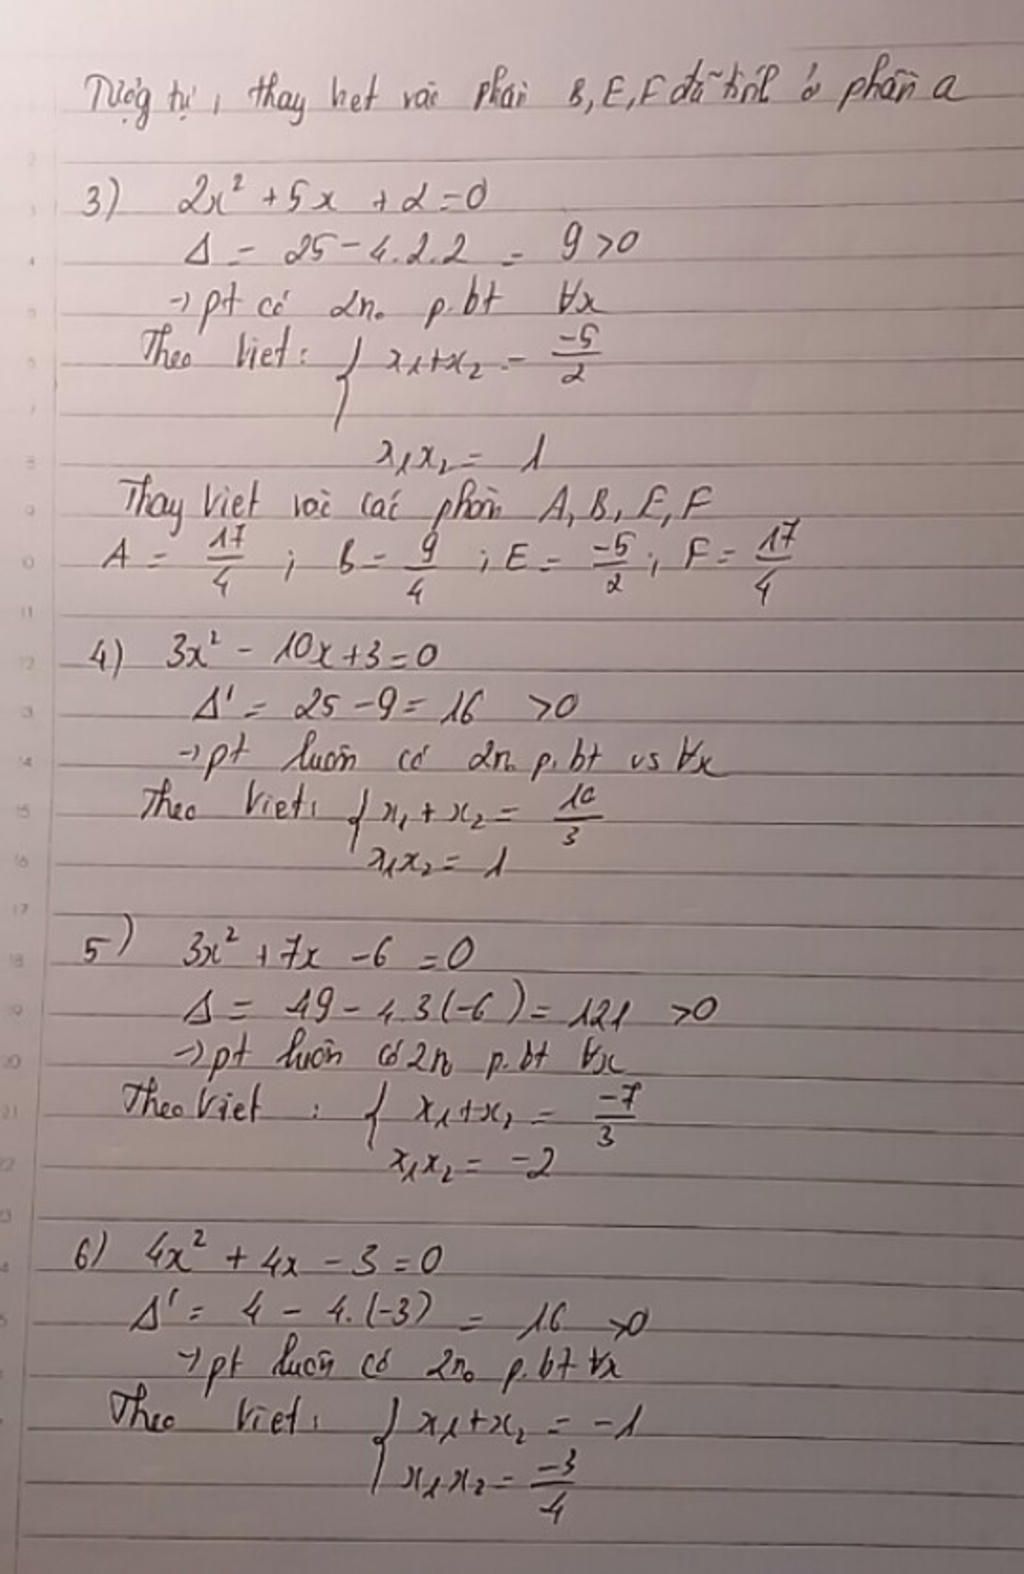 Tương tự, thay hết vào phần B, E, F đã tính ở phần a
3) 2x² + 5x + 2 = 0
Δ = 25 - 4.2.2 = 9 > 0
→ pt có 2n₀ p.bt ∀x
Theo Viet: { x₁+x₂ = -5/2
x₁x₂ = 1
Thay Viet vào các phần A, B, E, F
A = 17/4 ; B = 9/4 ; E = -5/2 ; F = 17/4
4) 3x² - 10x + 3 = 0
Δ' = 25 - 9 = 16 > 0
→ pt luôn có 2n₀ p.bt vs ∀x
Theo Viet: { x₁ + x₂ = 10/3
x₁x₂ = 1
5) 3x² + 7x - 6 = 0
Δ = 49 - 4.3(-6) = 121 > 0
→ pt luôn có 2n₀ p.bt ∀x
Theo Viet : { x₁+x₂ = -7/3
x₁x₂ = -2
6) 4x² + 4x - 3 = 0
Δ' = 4 - 4.(-3) = 16 > 0
→ pt luôn có 2n₀ p.bt ∀x
Theo Viet: { x₁+x₂ = -1
x₁x₂ = -3/4